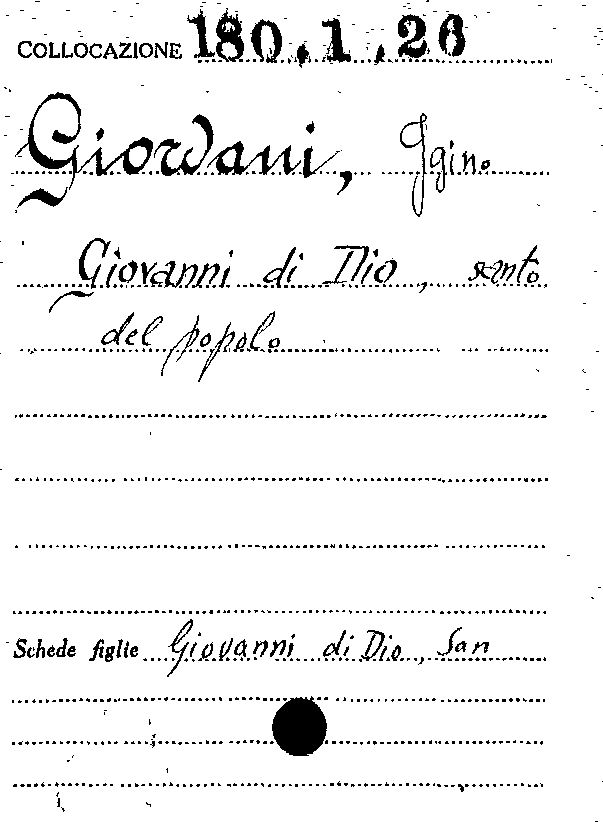 COLLOCAZIONE 180.1.26
Giordani, Igino
Giovanni di Dio, santo
del popolo
Schede figlie Giovanni di Dio, San